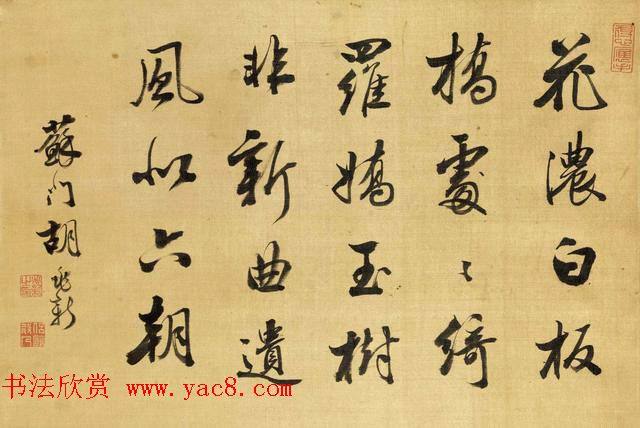 花濃白板
橋處々綺
羅嬌玉樹
非新曲遺
風似六朝
蘇门胡兆新
书法欣赏 www.yac8.com